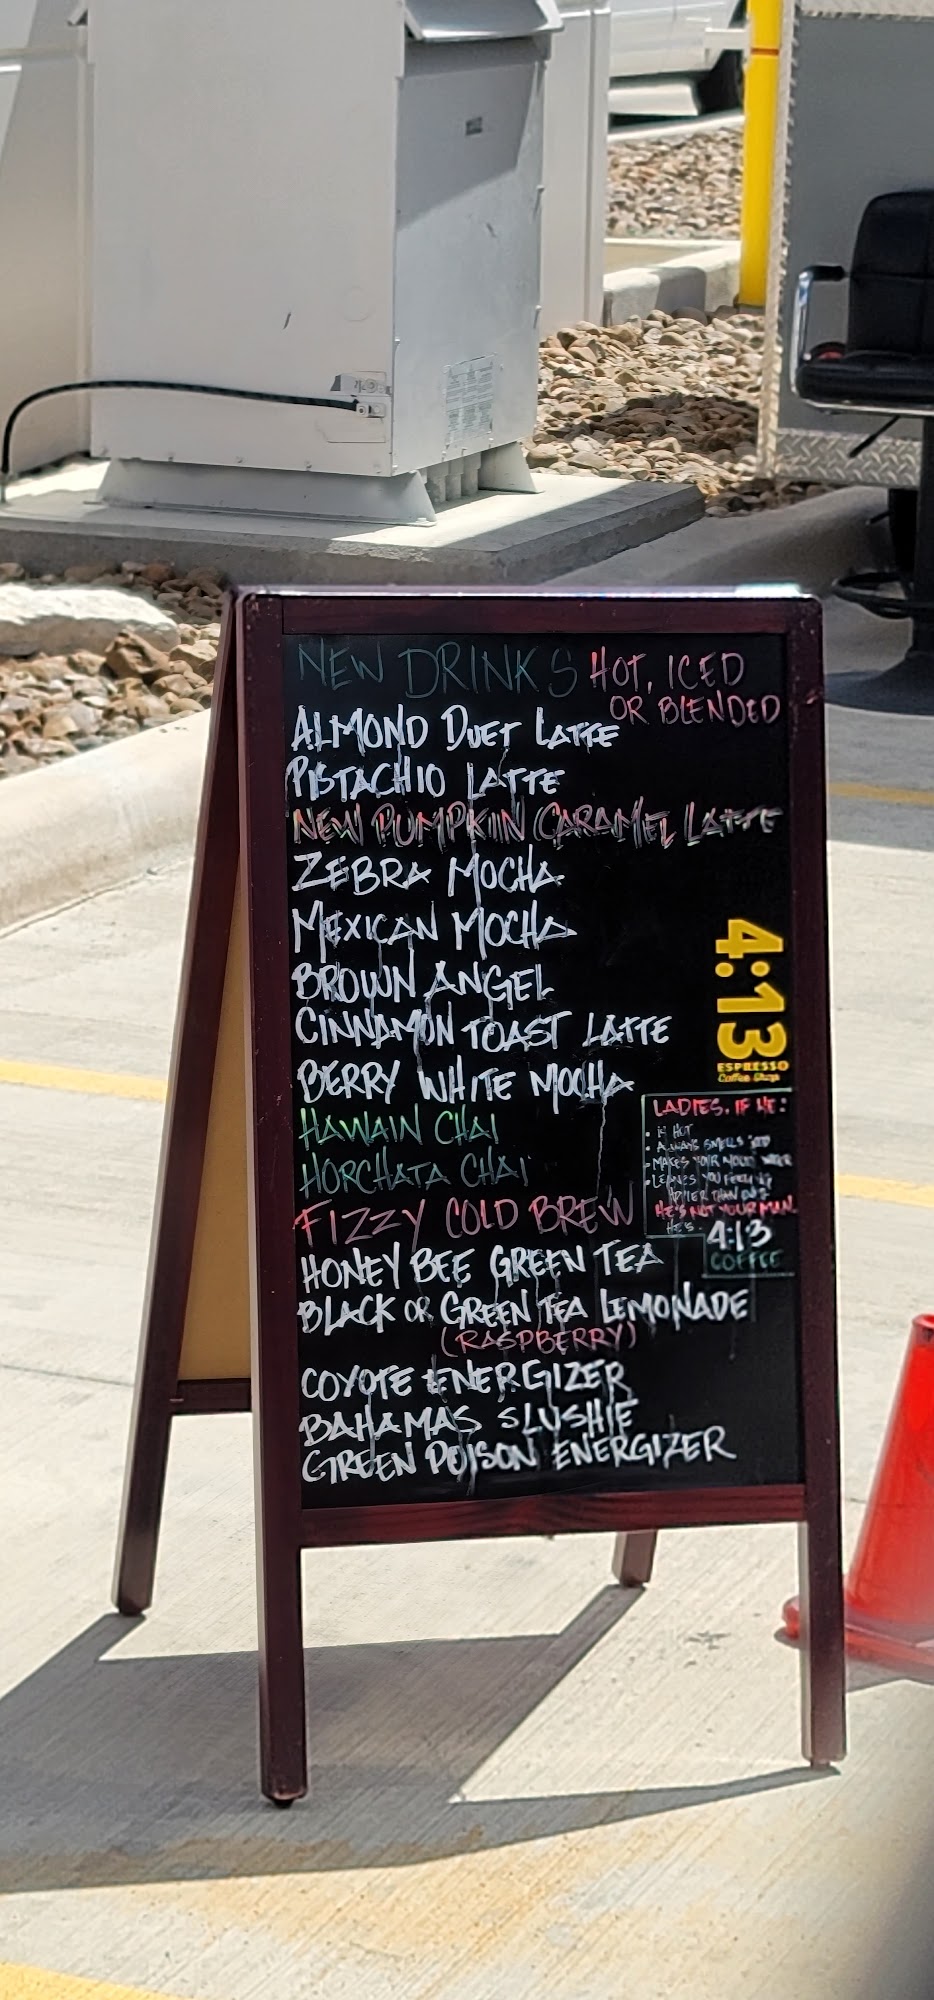 NEW DRINKS HOT, ICED
OR BLENDED
ALMOND DUET LATTE
PISTACHIO LATTE
NEW PUMPKIN CARAMEL LATTE
ZEBRA MOCHA
MEXICAN MOCHA
BROWN ANGEL
CINNAMON TOAST LATTE
BERRY WHITE MOCHA
HAWAIN CHAI
HORCHATA CHAI
FIZZY COLD BREW
HONEY BEE GREEN TEA
BLACK OR GREEN TEA LEMONADE
(RASPBERRY)
COYOTE ENERGIZER
BAHAMAS SLUSHIE
GREEN POISON ENERGIZER
4:13
ESPRESSO
Coffee Shop
LADIES, IF HE:
• IS HOT
• ALWAYS SMELLS GOOD
• MAKES YOUR MOUTH WATER
• LEAVES YOU FEELING
HE'S NOT YOUR MAN
HE'S 4:13
COFFEE